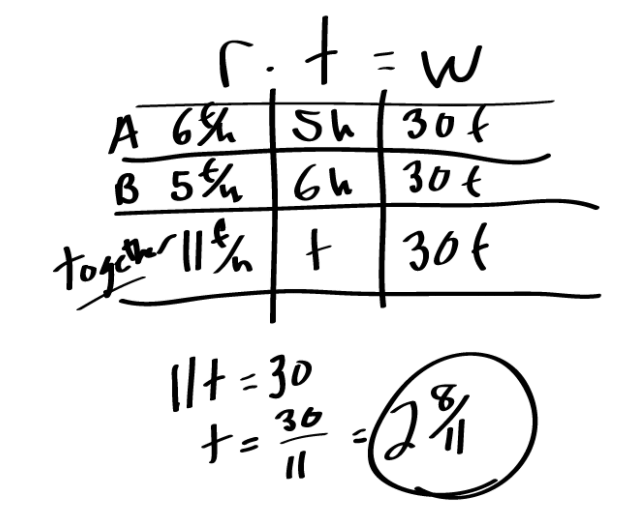 r · t = w
A 6 t/h 5h 30 t
B 5 t/h 6h 30 t
together 11 t/h t 30 t
11t = 30
t = 30/11 = 2 8/11